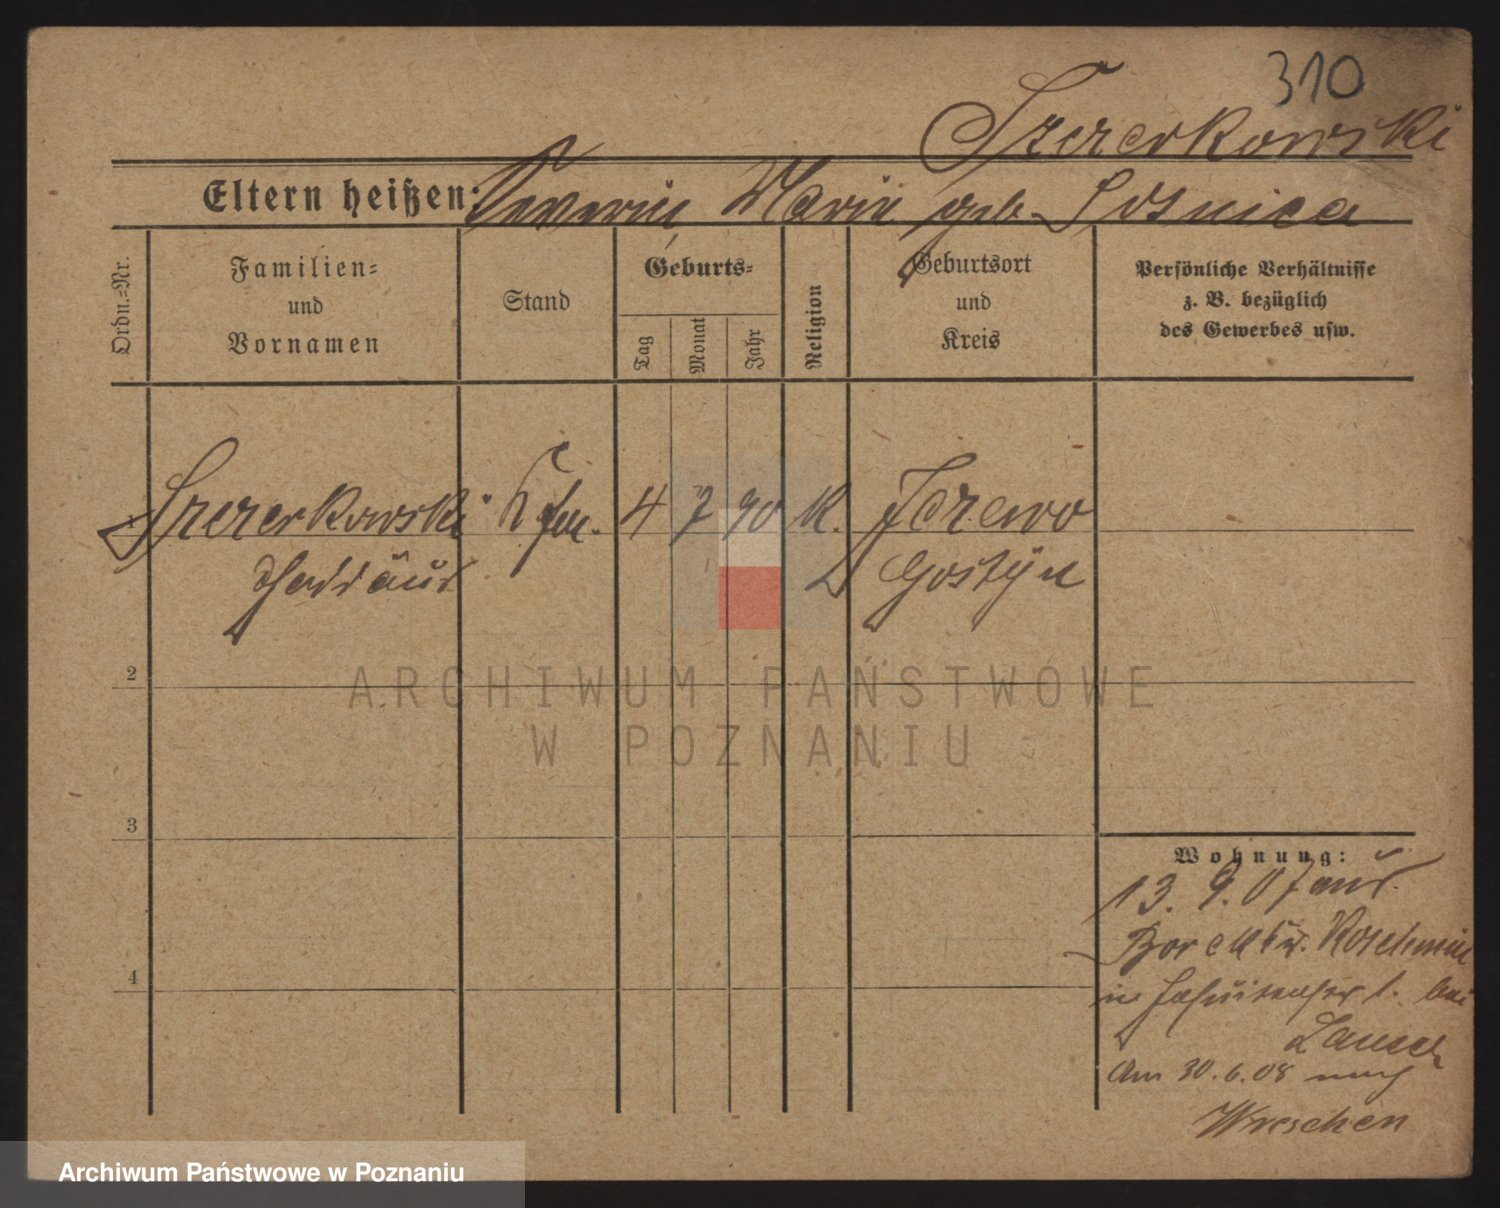 310
Szczerkowski
Eltern heißen: Severin Maria geb. Sosnica
Ordn.-Nr.
Familien-
und
Vornamen
Stand
Geburts-
Tag
Monat
Jahr
Religion
Geburtsort
und
Kreis
Persönliche Verhältnisse
z. B. bezüglich
des Gewerbes usw.
1 Szczerkowski 4 7 90 K. Jezewo
Thaddäus Gostyn
2
3
4
Wohnung:
13. 9. 07 aus
Borek Koschmin
in bei
Am 30.6.08 nach
Wreschen
ARCHIWUM PAŃSTWOWE
W POZNANIU
Archiwum Państwowe w Poznaniu